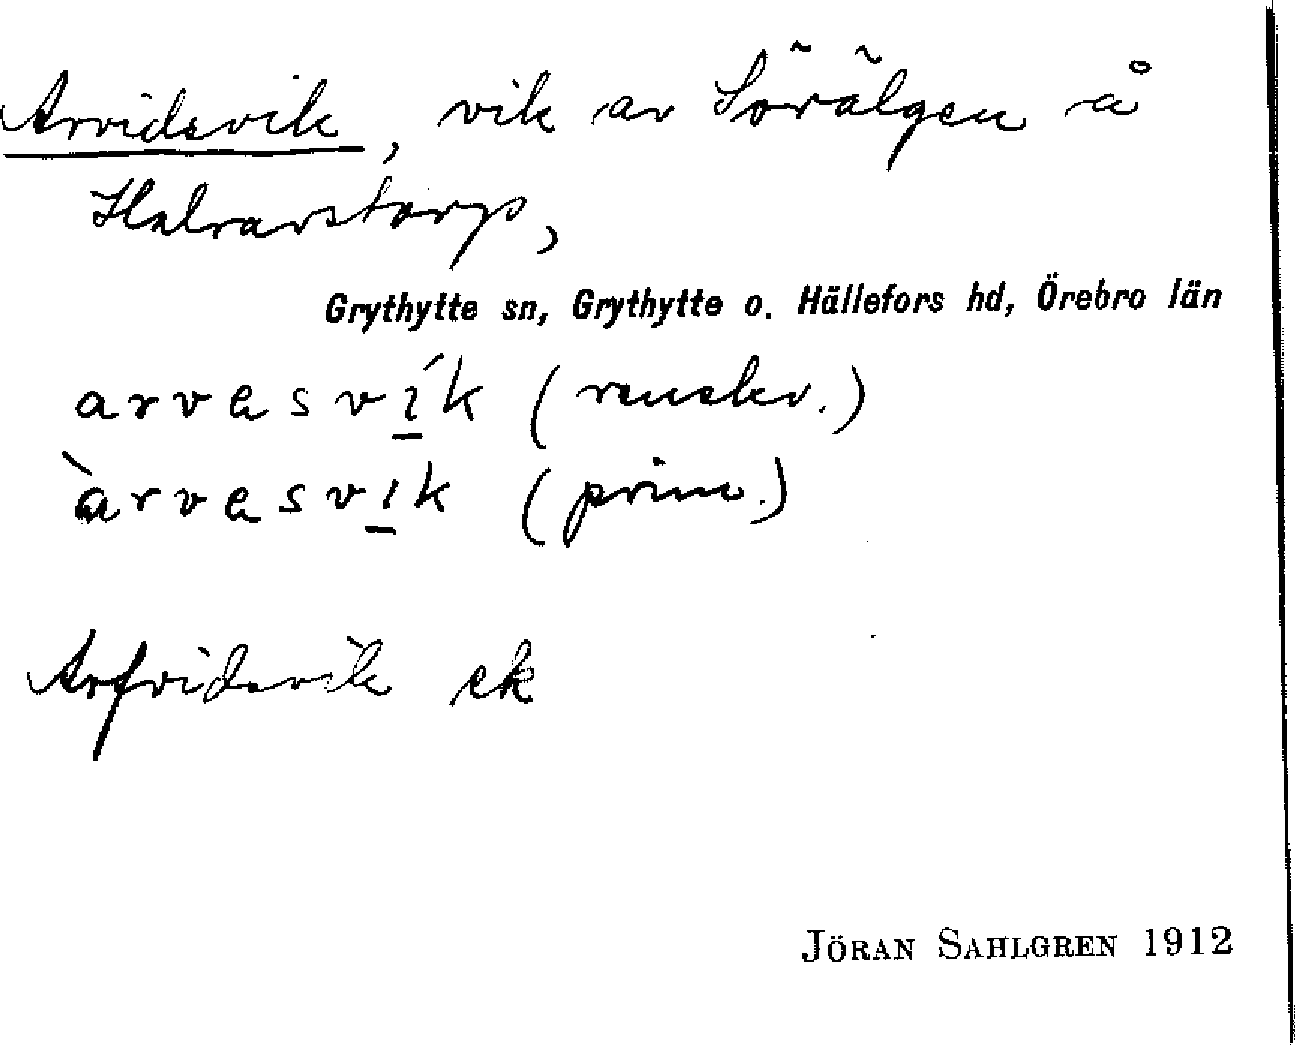 Arvidsvik, vik av Sörälgen å
Halvarstorp,
Grythytte sn, Grythytte o. Hällefors hd, Örebro län
arvesvík (renskr.)
àrvesvik (prim.)
Arfvidsvik ek
JÖRAN SAHLGREN 1912